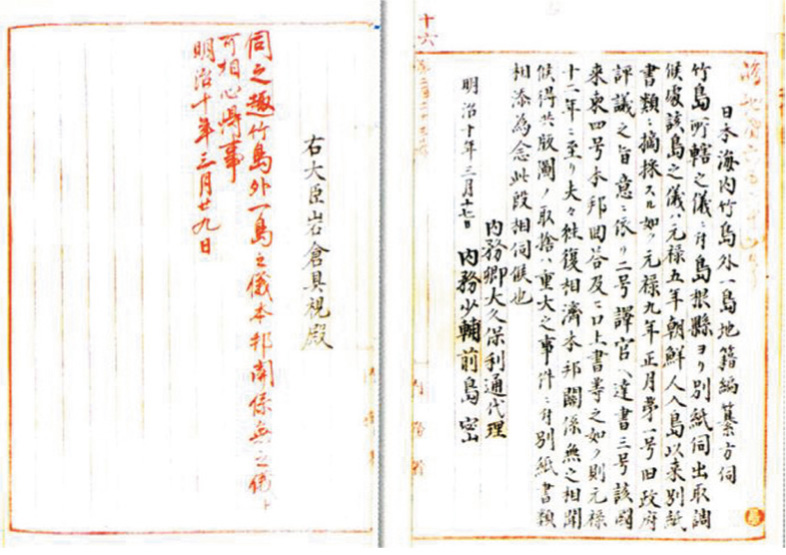 日本海内竹島外一島地籍編纂方伺
竹島所轄之儀ニ付島根縣ヨリ別紙伺出取調
候處該島之儀ハ元禄五年朝鮮人入島以来別紙
書類ニ摘採スル如ク元禄九年正月第一号旧政府
評議之旨意ニ依リ二号譯官ヘ達書三号該國
来柬四号本邦回答及ヒ口上書等之如ク則元禄
十二年ニ至リ夫々往復相濟本邦關係無之相聞
候得共版圖ノ取捨ハ重大之事件ニ付別紙書類
相添為念此段相伺候也
内務卿大久保利通代理
明治十年三月十七日 内務少輔前島密
十六
右大臣岩倉具視殿
伺之趣竹島外一島之儀本邦関係無之儀ト
可相心得事
明治十年三月廿九日